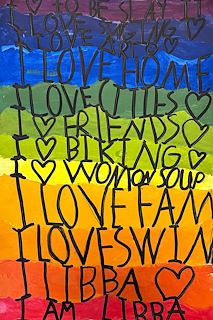 I ♡ TO BE SLAY
I LOVE SINGING
I LOVE ART ♡
I LOVE HOME
I LOVE CITIES ♡
I ♡ FRIENDS ♡
I ♡ BIKING ♡
I ♡ WONTON SOUP
I LOVE FAM
I LOVE SWIM
I LIBBA ♡
I AM LIBBA